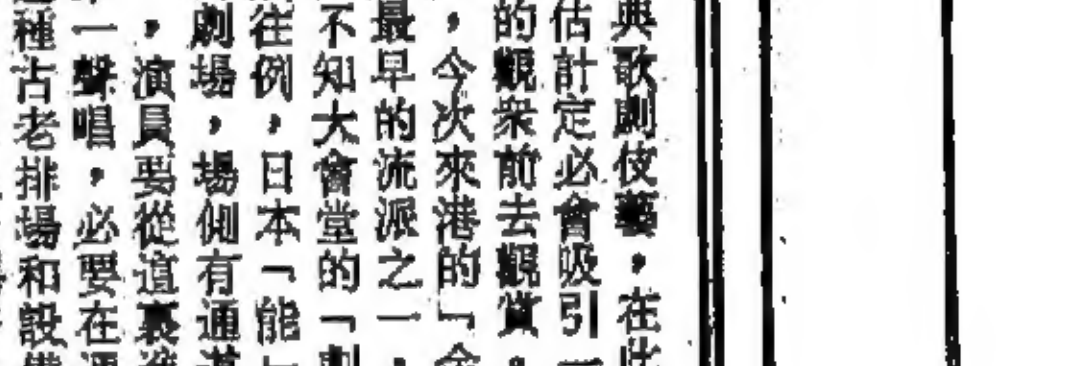 典歌劇伎藝，在此
估計定必會吸引一
的觀衆前去觀賞，
，今次來港的「金
最早的流派之一，
不知大會堂的「劇
往例，日本「能」
劇場，場側有通道
，演員要從這裏
一聲唱，必要在
種古老排場和設備